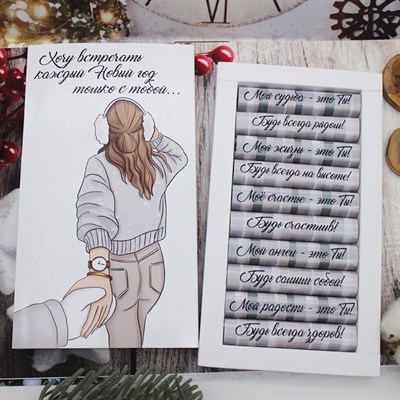 Хочу встречать
каждый Новый год
только с тобой...
Моя судьба - это Ты!
Будь всегда рядом!
Моя жизнь - это Ты!
Будь всегда на высоте!
Моё счастье - это Ты!
Будь счастлив!
Мой ангел - это Ты!
Будь самим собой!
Моя радость - это Ты!
Будь всегда здоров!